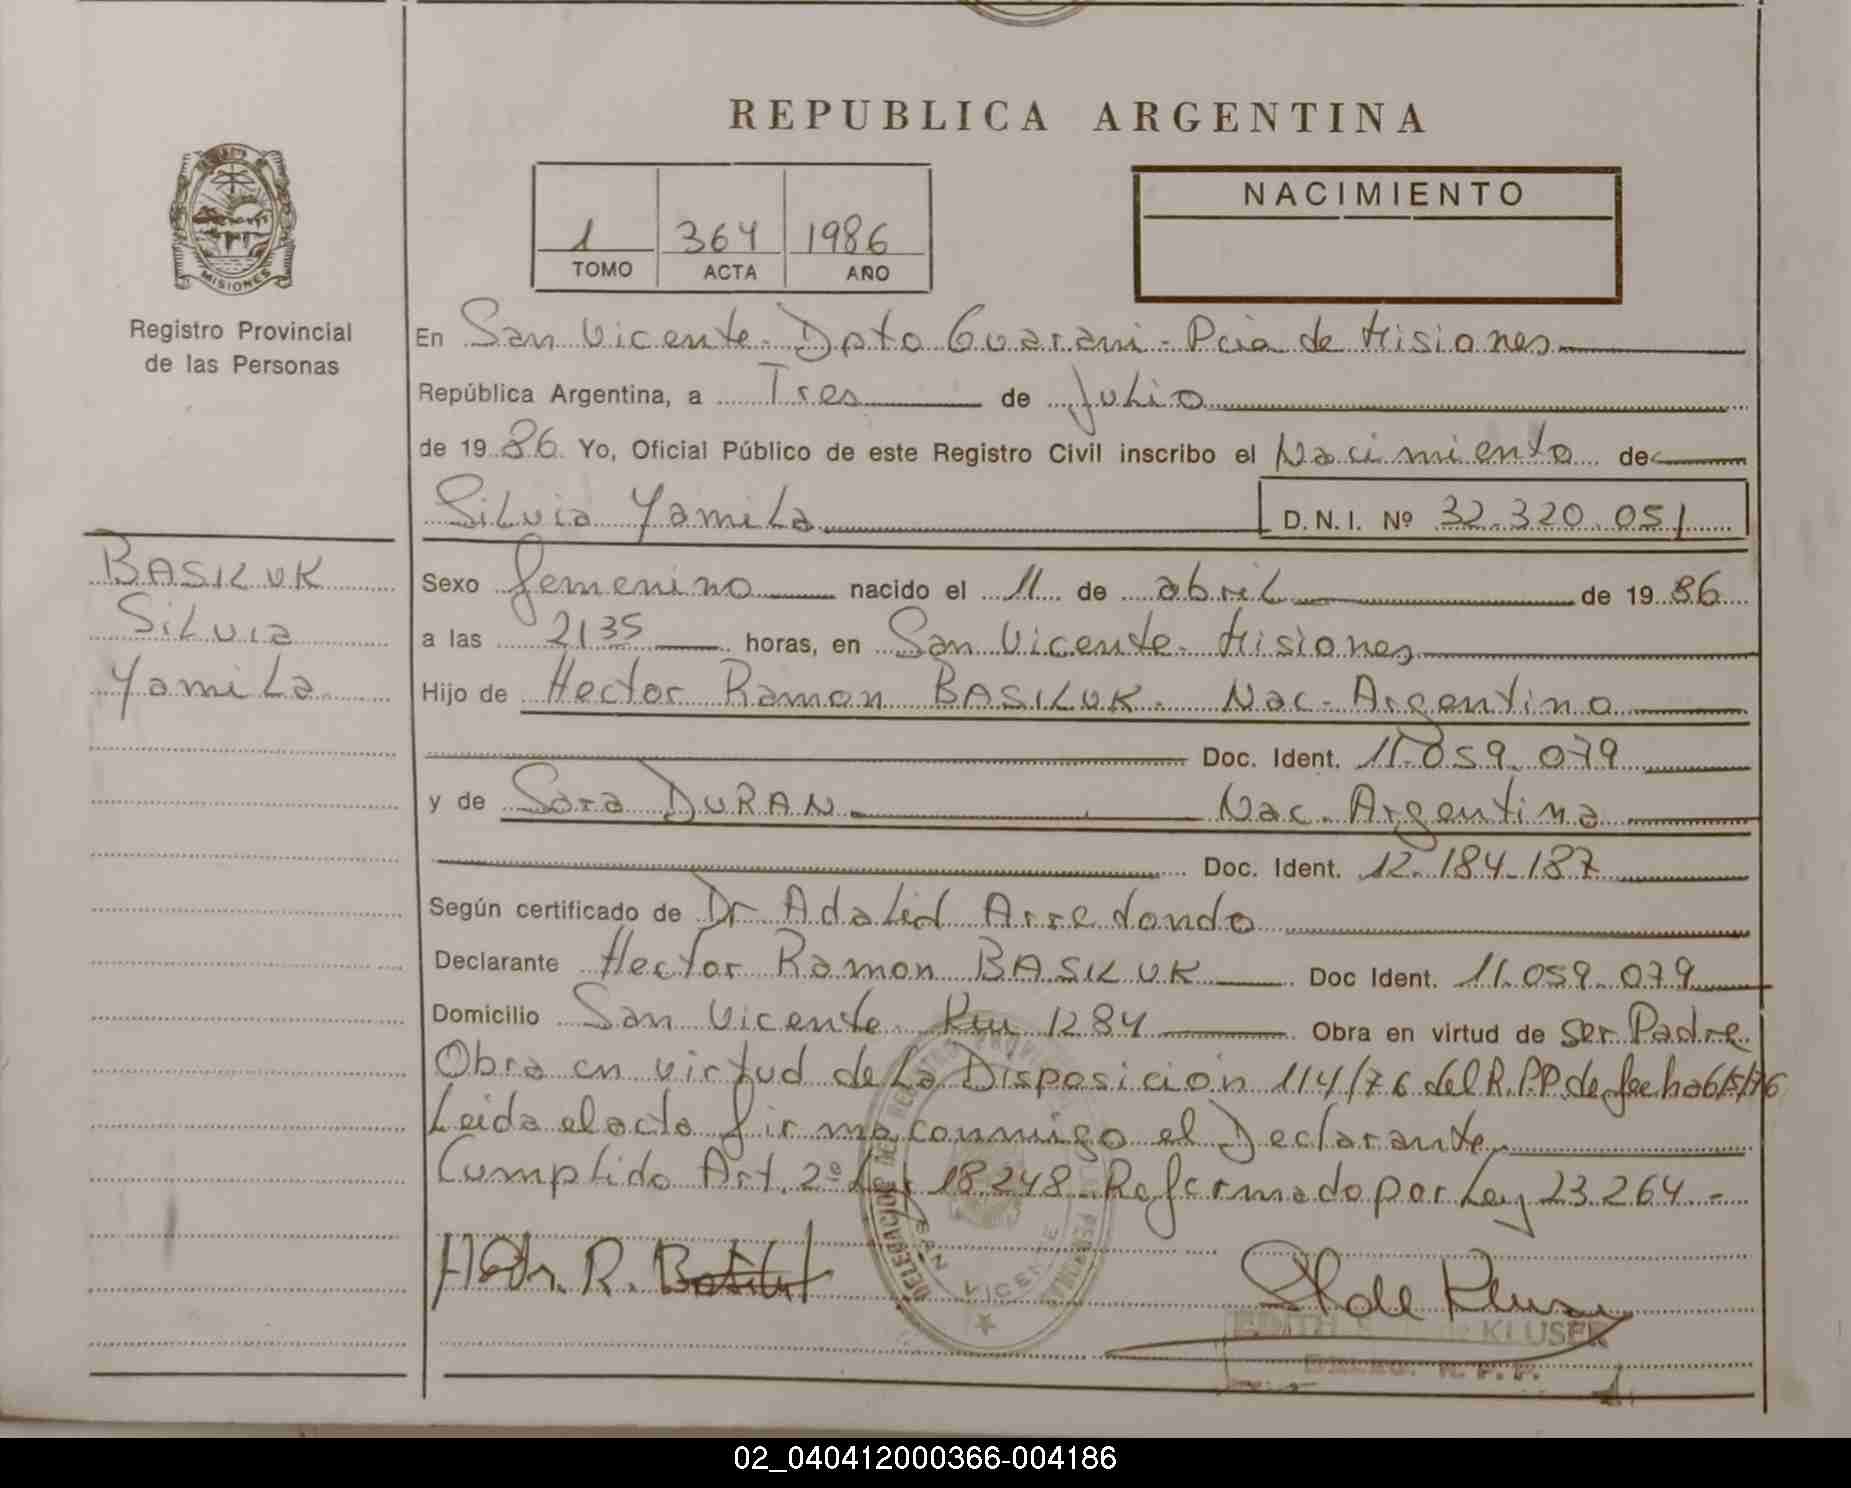 REPUBLICA ARGENTINA
1 364 1986
TOMO ACTA AÑO
NACIMIENTO
MISIONES
Registro Provincial
de las Personas
En San Vicente - Dpto Guarani - Pcia de Misiones
República Argentina, a Tres de Julio
de 19 86 Yo, Oficial Público de este Registro Civil inscribo el Nacimiento de
Silvia Yamila D.N.I. Nº 32.320.051
BASILUK
Silvia
Yamila
Sexo femenino nacido el 11 de abril de 19 86
a las 21 35 horas, en San Vicente - Misiones
Hijo de Hector Ramon BASILUK - Nac - Argentino
Doc. Ident. 11.059.079
y de Sara DURAN Nac. Argentina
Doc. Ident. 12.184.187
Según certificado de Dr Adalid Arredondo
Declarante Hector Ramon BASILUK Doc Ident. 11.059.079
Domicilio San Vicente Km 1284 Obra en virtud de Ser Padre
Obra en virtud de La Disposición 114/76 del R.P.P de fecha 6/5/76
Leida el acta firma conmigo el Declarante
Cumplido Art. 2º Ley 18.248 - Reformado por Ley 23.264 -
DELEGACION DEL REGISTRO PROVINCIAL PERSONAS
SAN VICENTE
EDITH KLUSER
R. P. P.
02_040412000366-004186